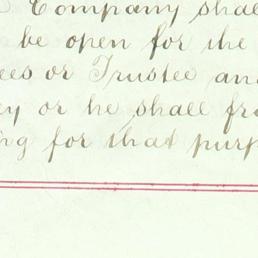 Company shall
be open for the
ees or Trustee and
ey or he shall fro
ng for that purp